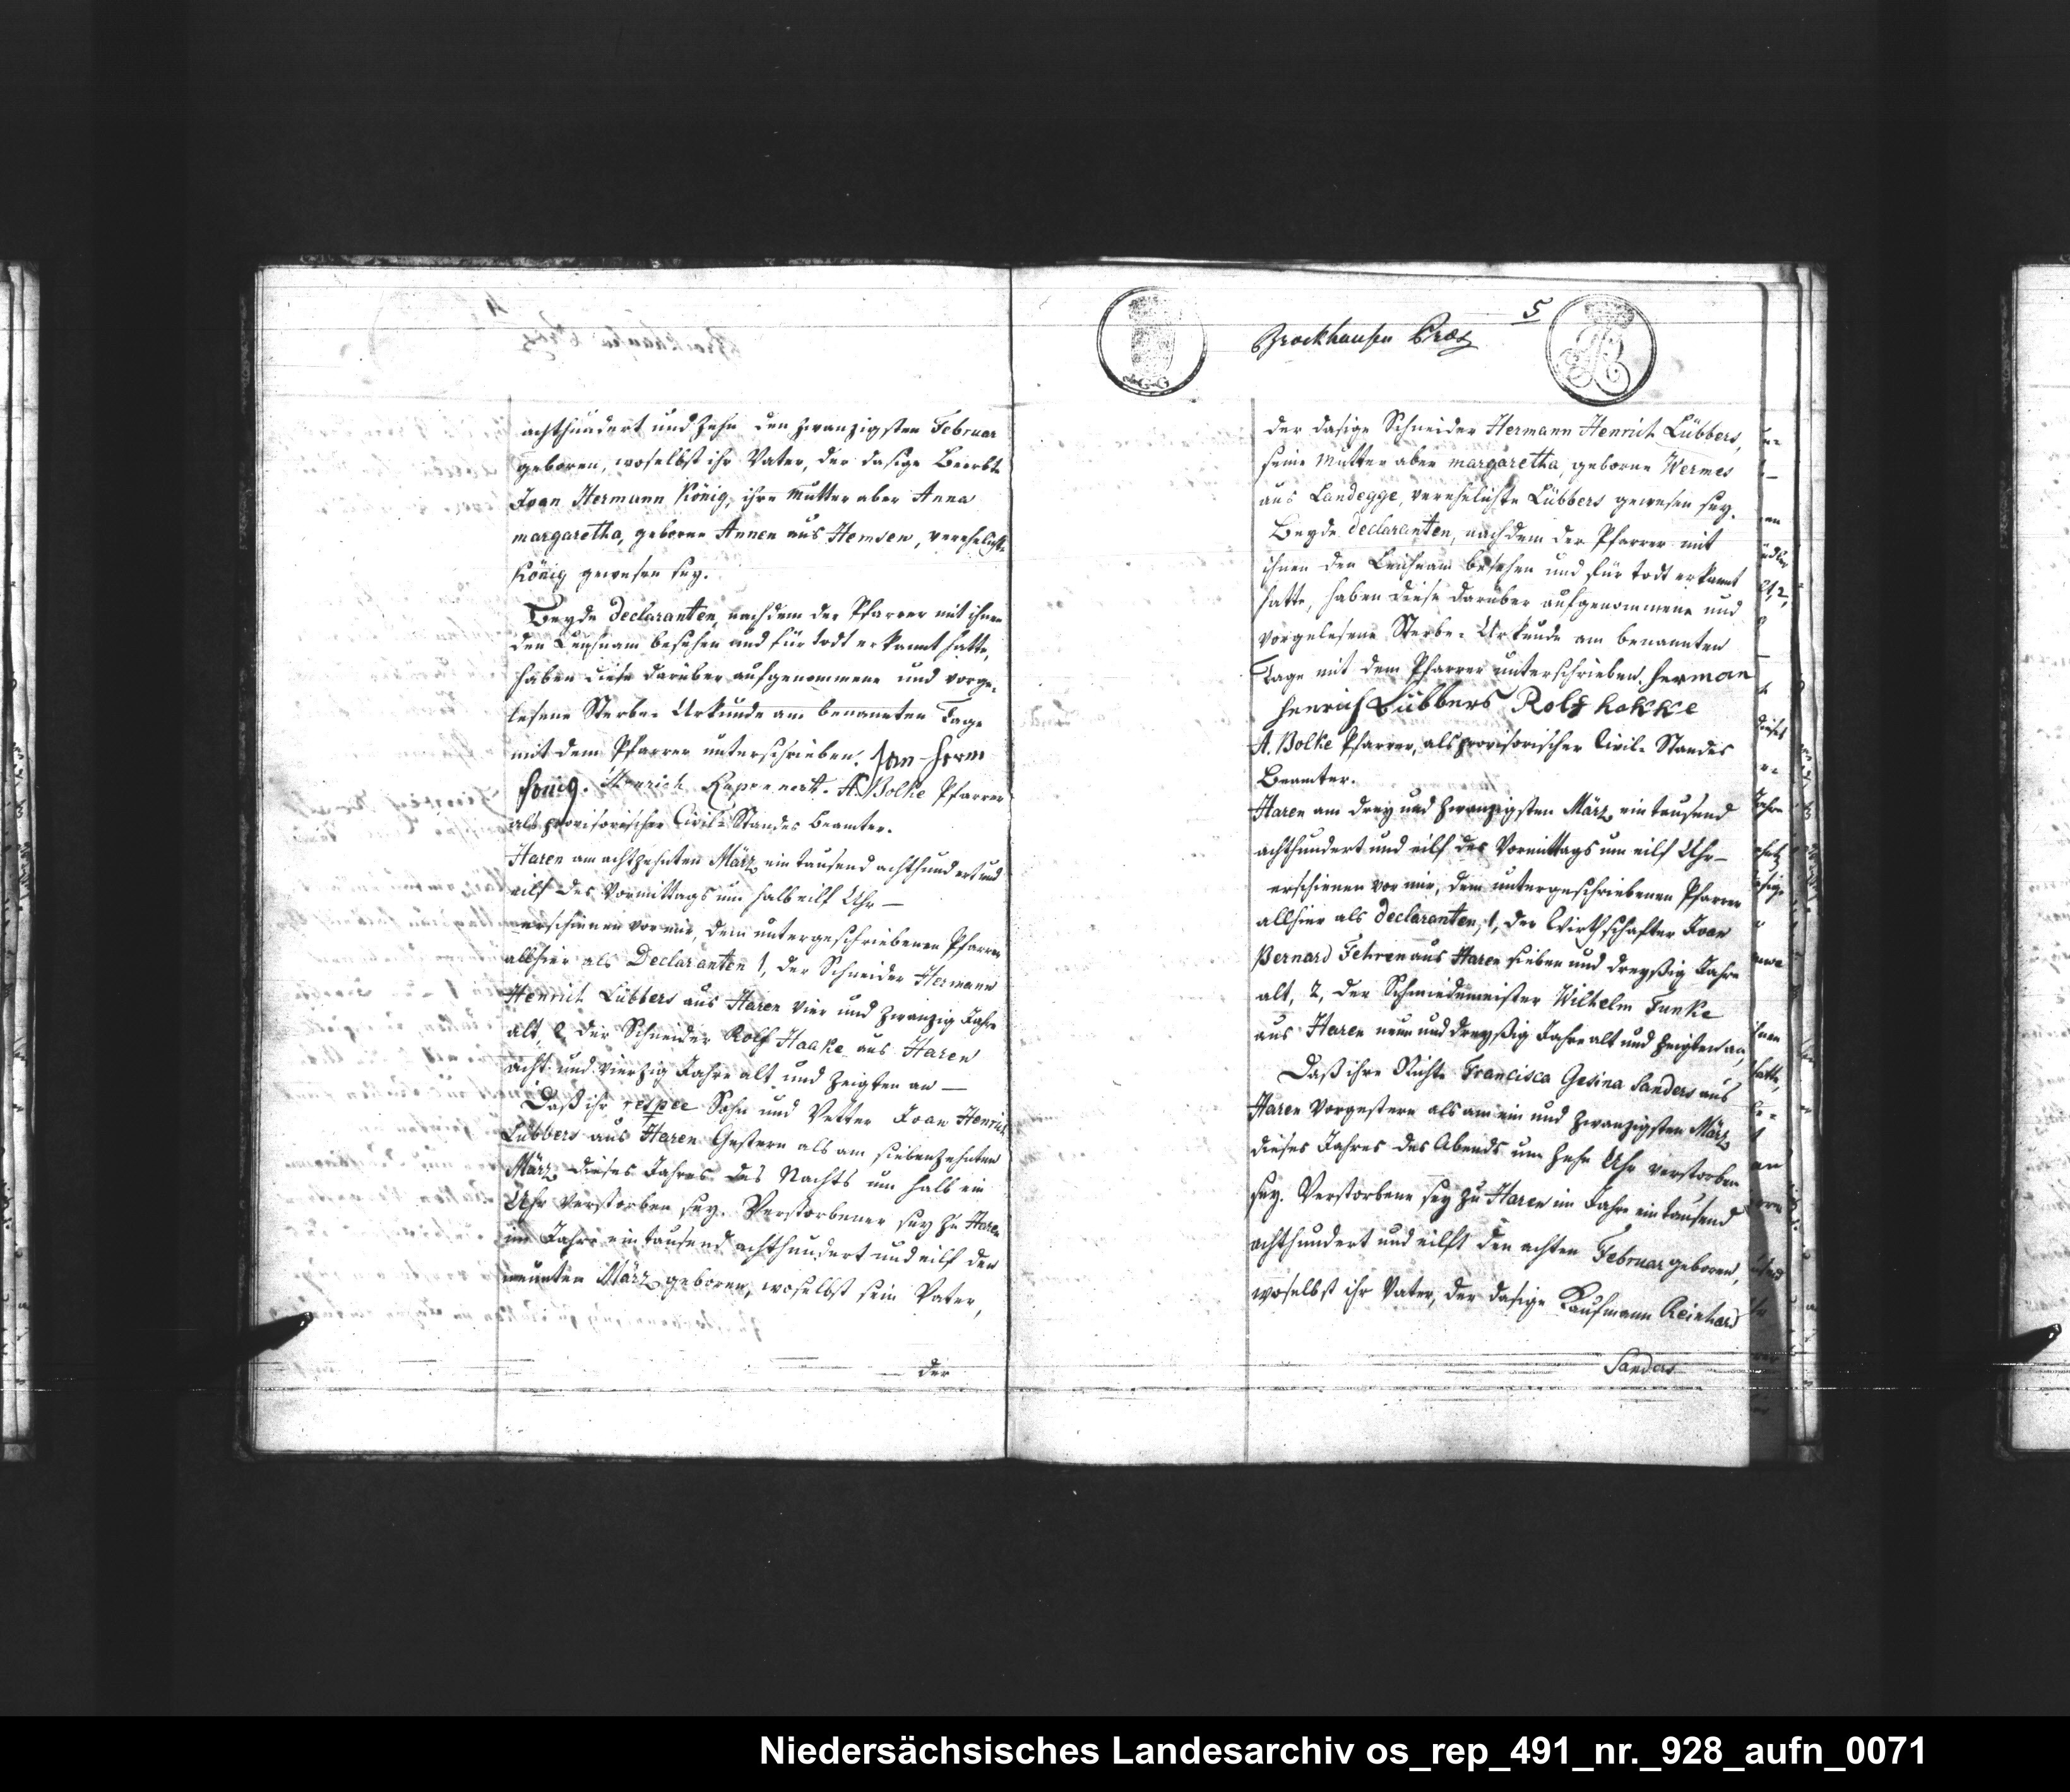 achthundert und zehn den zwanzigsten Februar
geboren, woselbst ihr Vater, der dasige Beerbte
Joan Hermann König, ihre Mutter aber Anna
margaretha, geborne Annen aus Hemsen, verehelichte
König gewesen sey.
Beyde Declaranten, nachdem der Pfarrer mit ihnen
den Leichnam besehen und für todt erkannt hatte,
haben diese darüber aufgenommene und vorge-
lesene Sterbe-Urkunde am benannten Tage
mit dem Pfarrer unterschrieben. Jan Herm
König. Henrich A. Bolke Pfarrer
als provisorischer Civil-Standes Beamter.
Haren am achtzehnten März ein tausend achthundert und
eilf des Vormittags um halb eilf Uhr —
erschienen vor mir, dem untergeschriebenen Pfarrer
allhier als Declaranten 1, der Schneider Hermann
Henrich Lübbers aus Haren vier und zwanzig Jahre
alt, 2 der Schneider Rolf Haake aus Haren
acht und vierzig Jahre alt und zeigten an —
Daß ihr respee Sohn und Vetter Joan Henrich
Lübbers aus Haren Gestern als am siebenzehnten
März dieses Jahres des Nachts um halb ein
Uhr verstorben sey. Verstorbener sey zu Haren
im Jahre ein tausend achthundert und eilf den
neunten März geboren, woselbst sein Vater,
der
5
Brockhausen Præs
der dasige Schneider Hermann Henrich Lübbers,
seine Mutter aber margaretha, geborne Wermes
aus Landegge, verehelichte Lübbers gewesen sey.
Beyde Declaranten, nachdem der Pfarrer mit
ihnen den Leichnam besehen und für todt erkannt
hatte, haben diese darüber aufgenommene und
vorgelesene Sterbe-Urkunde am benannten
Tage mit dem Pfarrer unterschrieben. herman
henrich Lübbers Rolf hakke
A. Bolke Pfarrer, als provisorischer Civil-Standes
Beamter.
Haren am drey und zwanzigsten März ein tausend
achthundert und eilf des Vormittags um eilf Uhr —
erschienen vor mir, dem untergeschriebenen Pfarrer
allhier als Declaranten, 1, der Wirthschafter Joan
Bernard Fehren aus Haren sieben und dreyßig Jahre
alt, 2, der Schmiedemeister Wilhelm Funke
aus Haren neun und dreyßig Jahre alt und zeigten an,
Daß ihre Nichte Francisca Gesina Sanders aus
Haren Vorgestern als am ein und zwanzigsten März
dieses Jahres des Abends um zehn Uhr verstorben
sey. Verstorbene sey zu Haren im Jahre ein tausend
achthundert und eilft den achten Februar geboren,
woselbst ihr Vater, der dasige Kaufmann Reinhard
Sanders
Niedersächsisches Landesarchiv os_rep_491_nr._928_aufn_0071